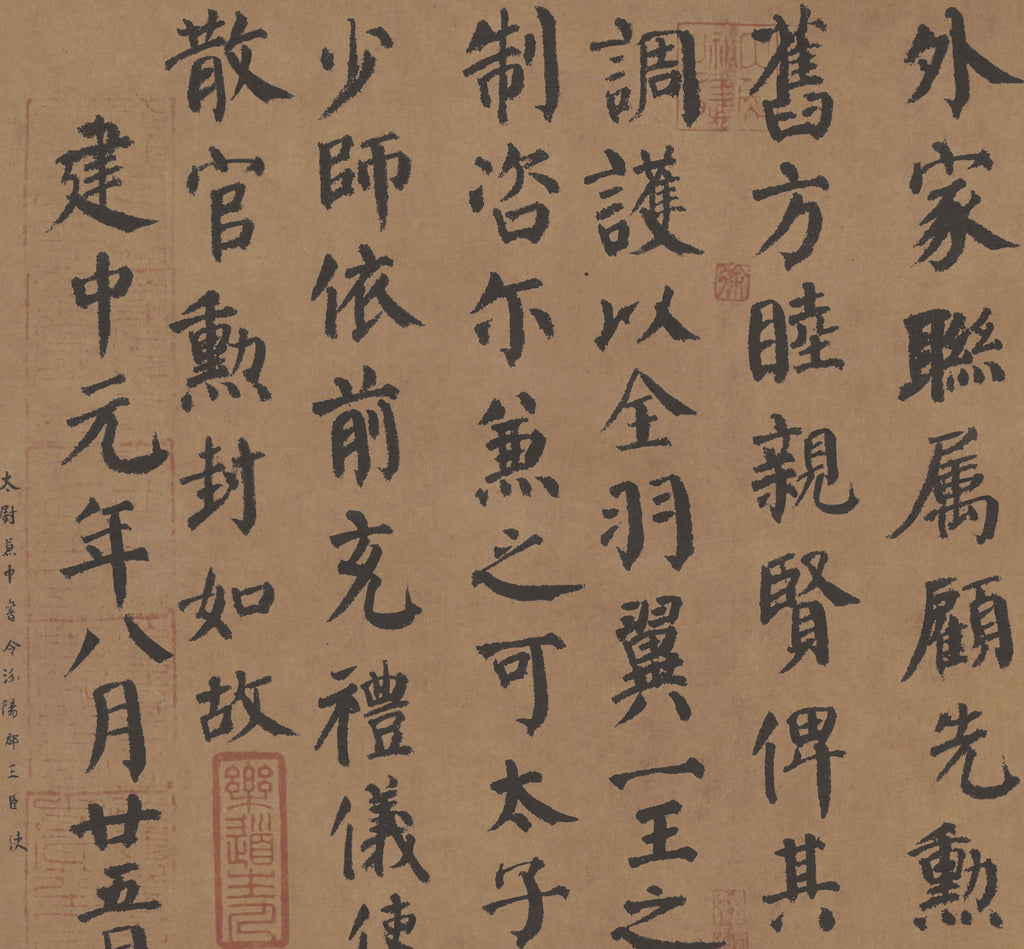 外家聯属顧先勳
舊方睦親賢俾其
調護以全羽翼一王之
制咨尔兼之可太子
少師依前充禮儀使
散官勳封如故
建中元年八月廿五日
太尉兼中書令汾陽郡王臣使